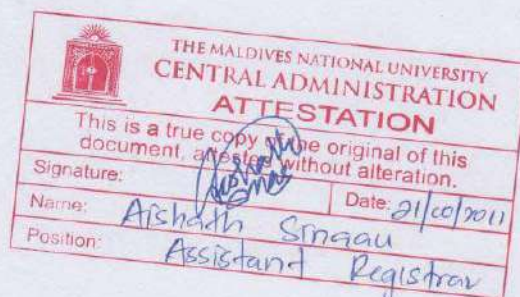 THE MALDIVES NATIONAL UNIVERSITY
CENTRAL ADMINISTRATION
ATTESTATION
This is a true copy of the original of this
document, attested without alteration.
Signature:
Date: 2011
Name: Aishath
Position: Assistant Registrar